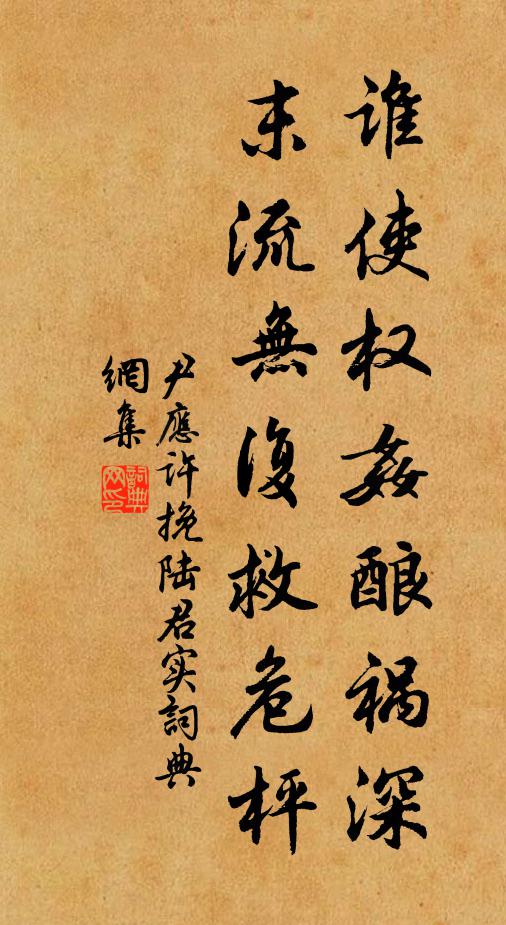 谁使权姦酿祸深
末流無復救危枰
尹應许挽陆君实詞典
網集
詞典网印